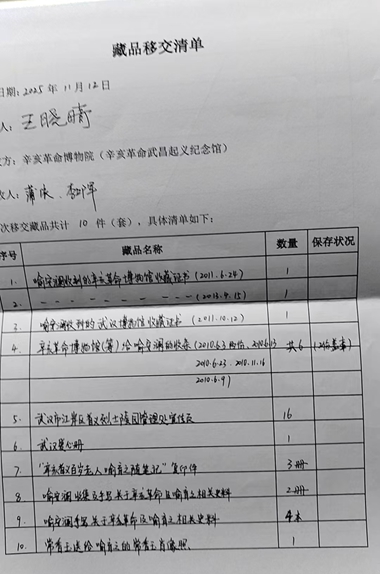 藏品移交清单
日期：2025年11月12日
人：王晓晴
方：辛亥革命博物院（辛亥革命武昌起义纪念馆）
收人：蒲
次移交藏品共计 10 件（套），具体清单如下：
序号 藏品名称 数量 保存状况
1. 喻 收到的辛亥革命博物馆收藏证书（2011.6.24） 1
2. - - - - - - - -（2013.4.15） 1
3. 喻 收到的武汉博物馆收藏证书（2011.10.12） 1
4. 辛亥革命博物馆（筹）给喻 的收条（2010.6.3 2010.6.13 共6
2010.6.23 2010.11.16
2010.6.9）
5. 武汉市江岸区 烈士陵园管理处宣传页 16
6. 武汉 册 1
7. “辛亥首义百岁老人喻育之随笔记”复印件 3册
8. 喻 收集及手写关于辛亥革命及喻育之相关史料 2册
9. 喻 手写关于辛亥革命及喻育之相关史料 4本
10. 常香玉送给喻育之的常香玉肖像照. 1